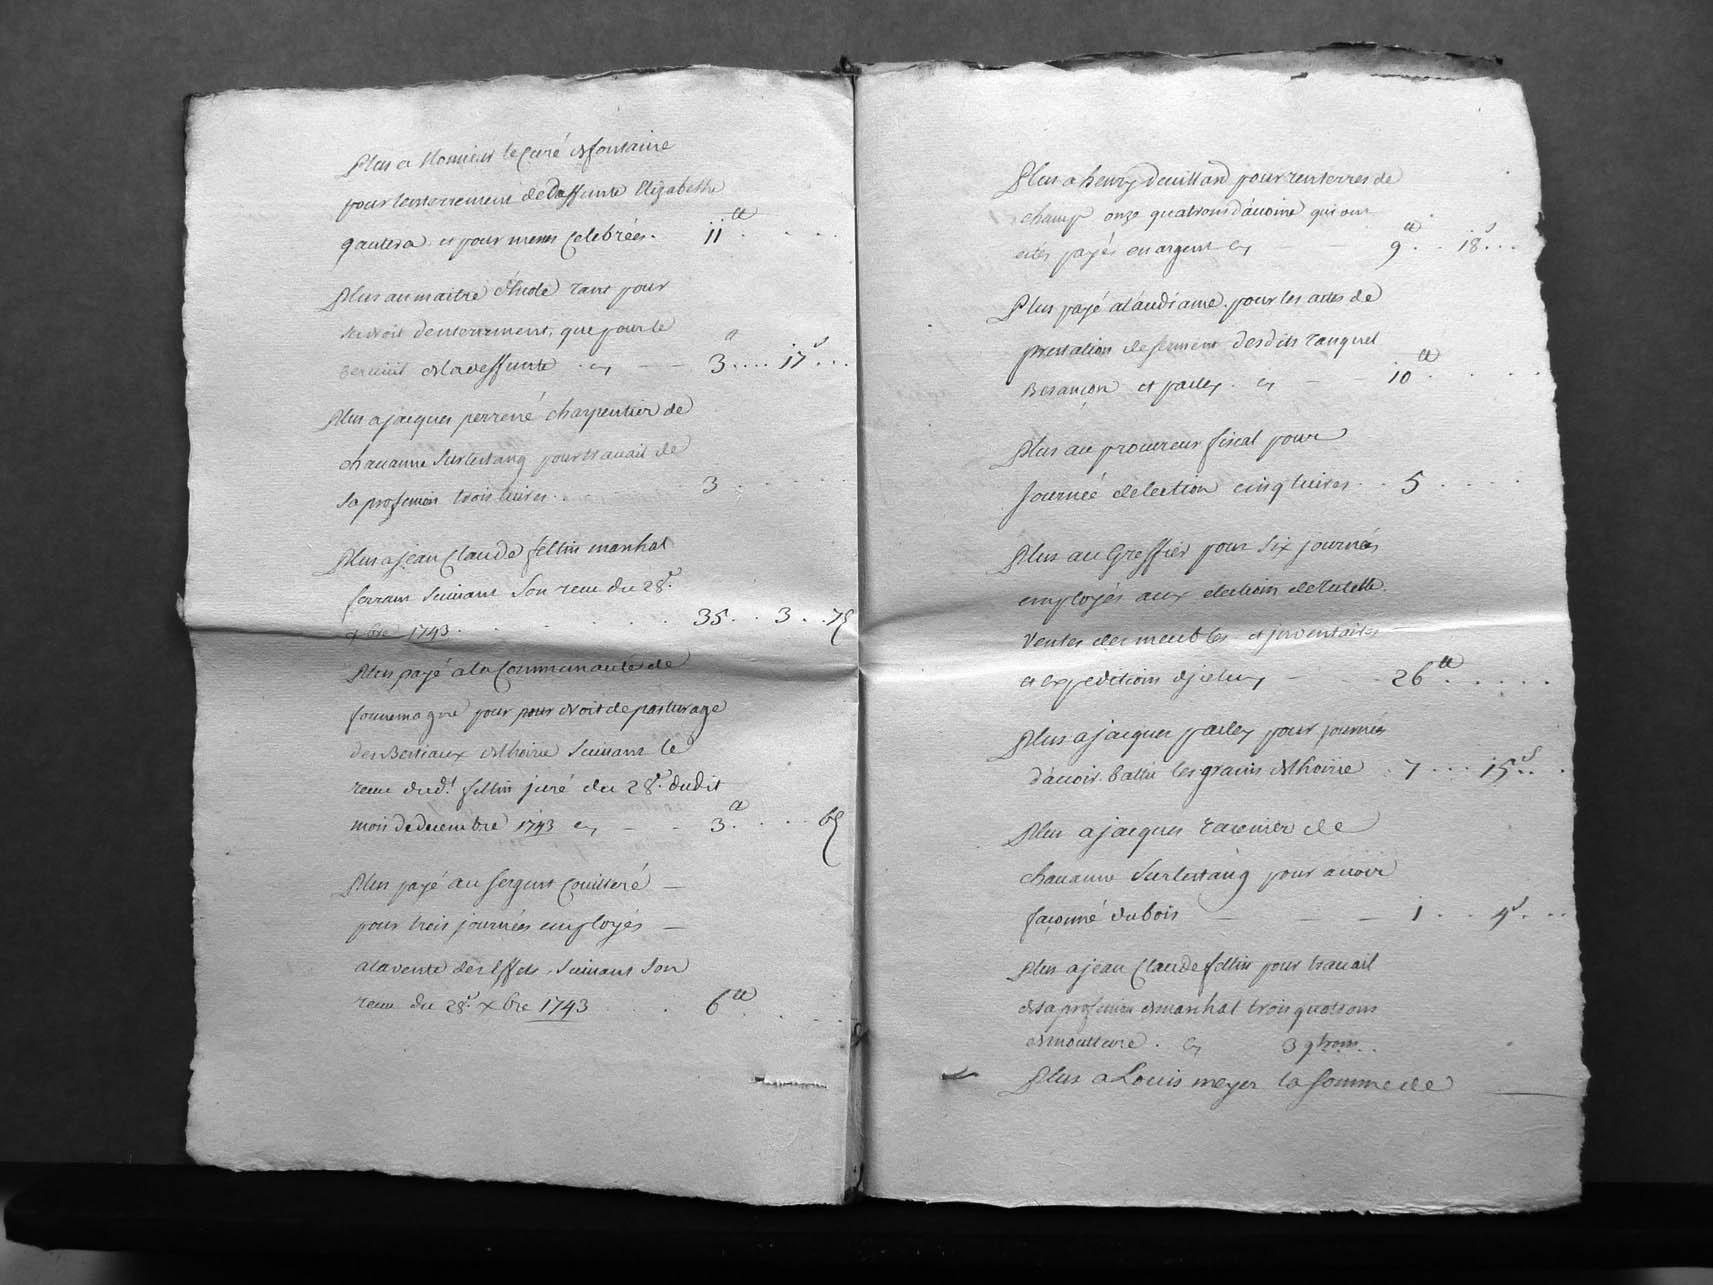 Plus a Monsieur le Curé de fontaine
pour lenterrement de Deffunte Elizabethe
et pour messes Celebrées. 11 ₶
Plus au maitre d'Ecole tant pour
Son droit denterrement, que pour le
de la deffunte . cy 3 ₶ 17 s
Plus a jacques perrené charpentier de
chauanne Surlestang pour trauail de
Sa profession trois liures. 3
Plus a jean Claude fellin marshal
ferrant Suiuant Son receu du 28.e
xbre 1743 35 3 7 d
Plus payé a la Communauté de
foussemagne pour pour droit de pasturage
des Bestiaux d'hoirie Suiuant le
receu dud.t fellin juré du 28.e dudit
mois de decembre 1743 cy 3 ₶ 6 d
Plus payé au Sergent
pour trois journées employés
a la vente des Effets, Suiuant Son
receu du 28.e xbre 1743 6 ₶
Plus a henry pour de
champ onze quatrons d'auoine qui ont
etés payés en argent cy 9 ₶ 18 s
Plus payé a laudiance pour les actes de
prestation de serment desdits
Besançon et parley . cy 10 ₶
Plus au procureur fiscal pour
Journée delection cinq liures 5
Plus au Greffier pour Six journées
employés aux elections de tutelle
Ventes des meubles et jnventaires
et expeditions cy 26 ₶
Plus a jacques parley pour journées
d'auoir battu les grains d'hoirie 7 15 s
Plus a jacques de
chauanne Surlestang pour auoir
façonné du bois 1 4 s
Plus a jean Claude fellin pour trauail
de sa profession de marshal trois quatrons
de mouteure . cy 3 qtrons
Plus a Louis meyer la Somme de